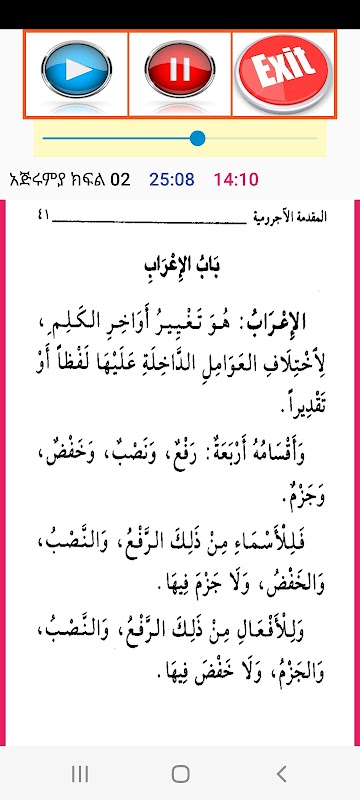 Exit
አጅሩምያ ክፍል 02 25:08 14:10
المقدمة الآجرومية ٤١
بَابُ الإِعْرَابِ
الإِعْرَابُ: هُوَ تَغْيِيرُ أَوَاخِرِ الكَلِمِ،
لِاخْتِلَافِ العَوَامِلِ الدَّاخِلَةِ عَلَيْهَا لَفْظاً أَوْ
تَقْدِيراً.
وَأَقْسَامُهُ أَرْبَعَةٌ: رَفْعٌ، وَنَصْبٌ، وَخَفْضٌ،
وَجَزْمٌ.
فَلِلْأَسْمَاءِ مِنْ ذَلِكَ الرَّفْعُ، وَالنَّصْبُ،
وَالخَفْضُ، وَلَا جَزْمَ فِيهَا.
وَلِلْأَفْعَالِ مِنْ ذَلِكَ الرَّفْعُ، وَالنَّصْبُ،
وَالجَزْمُ، وَلَا خَفْضَ فِيهَا.